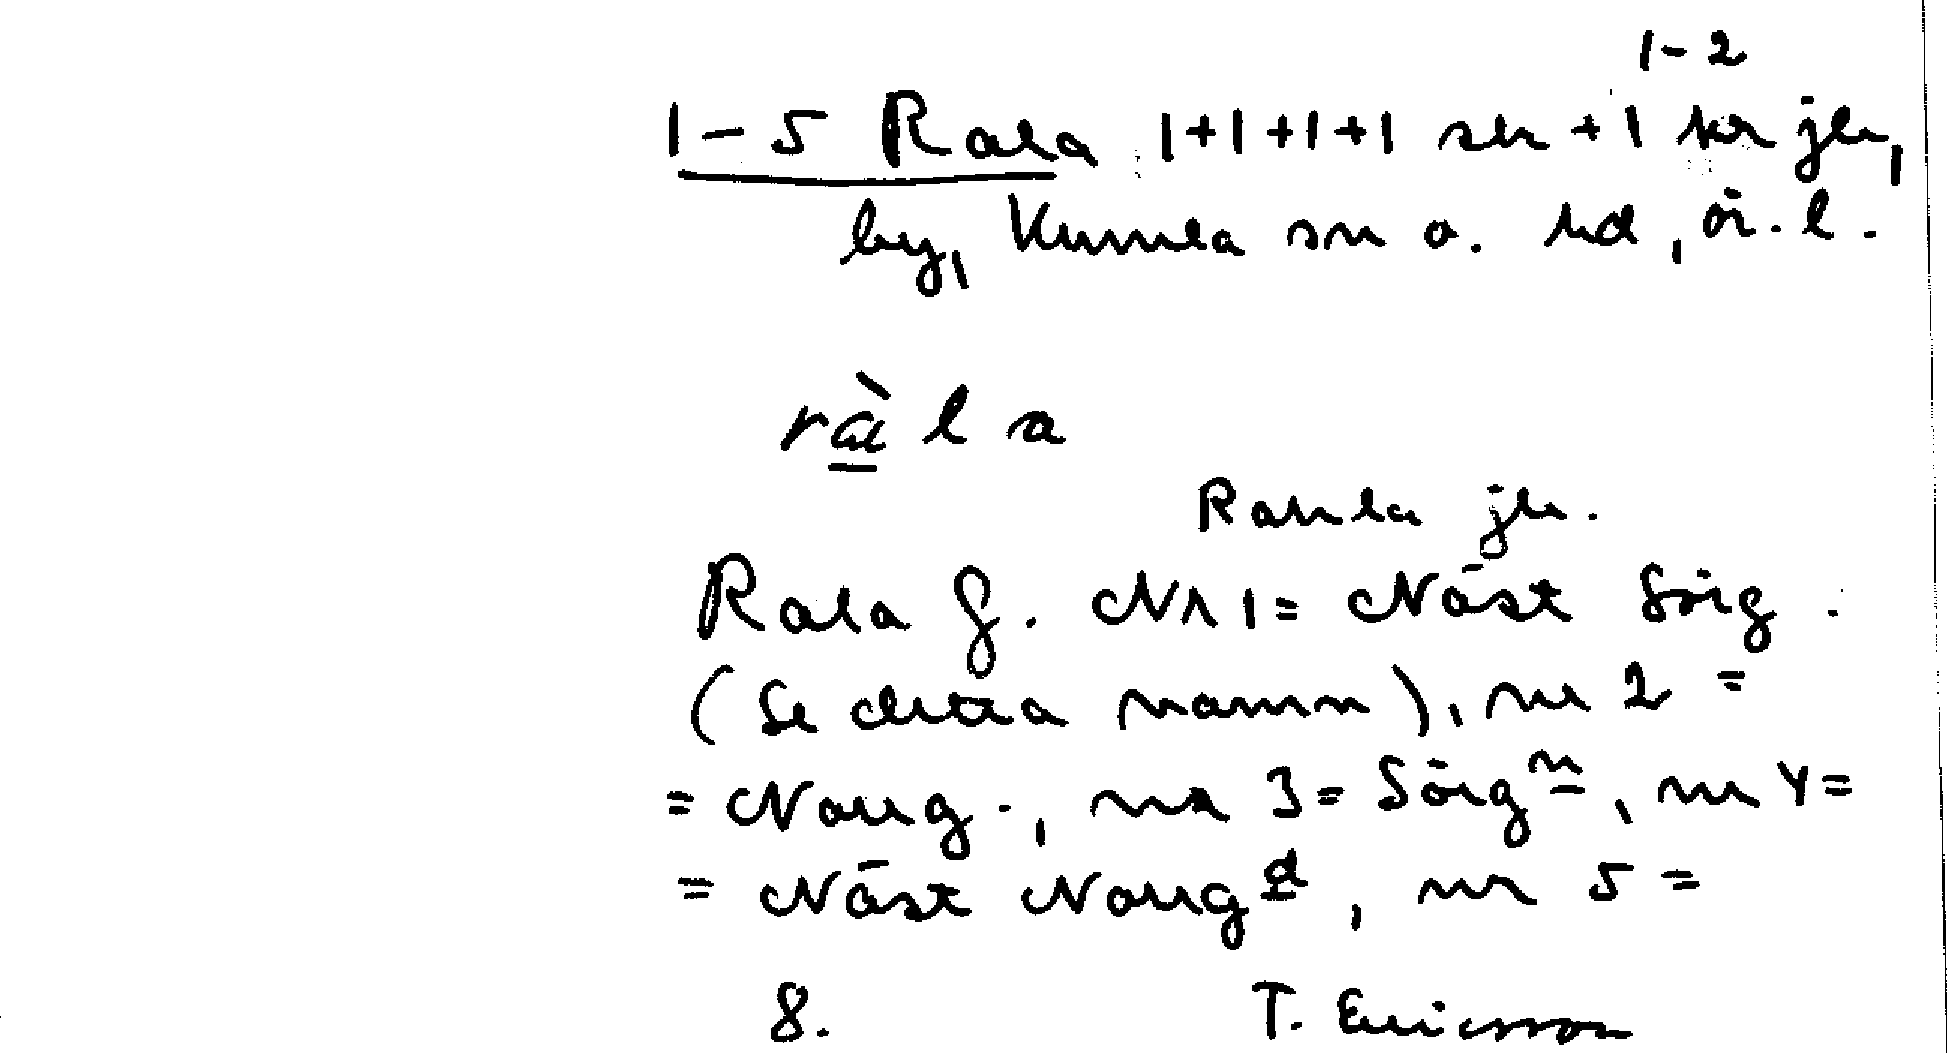 1-2
1-5 Rala 1+1+1+1 sk +1 kr jb,
by, Kumla sn o. hd, ör. l.
ràl a
Rahla jb.
Rala g. Nr 1 = Näst Sörg.
(Se detta namn), nr 2 =
= Norrg., nr 3 = Sörgn, nr 4 =
= Näst Norrgd, nr 5 =
8. T. Ericsson